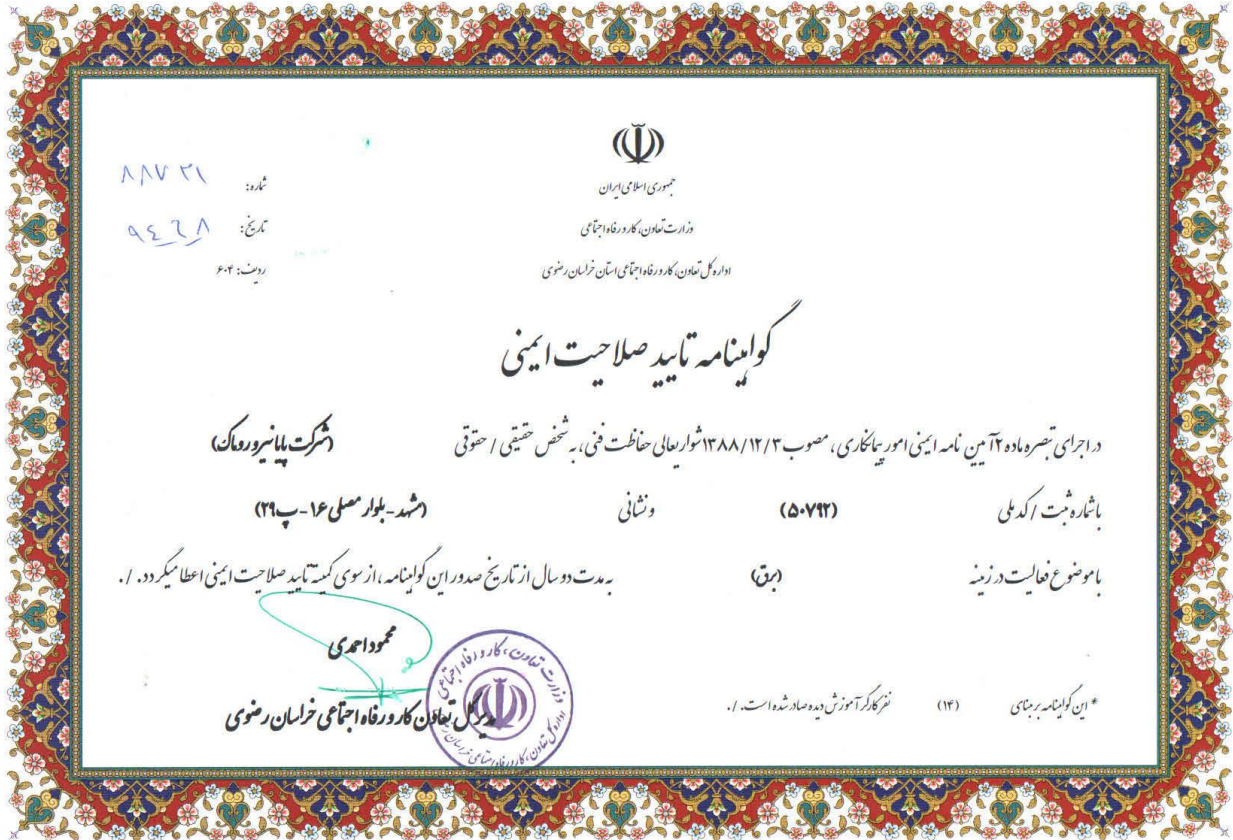 جمهوری اسلامی ایران
وزارت تعاون، کار و رفاه اجتماعی
اداره کل تعاون، کار و رفاه اجتماعی استان خراسان رضوی
شماره: ۸۸۷۳۱
تاریخ:
ردیف: ۶۰۴
گواهینامه تایید صلاحیت ایمنی
در اجرای تبصره ماده ۲ آیین نامه ایمنی امور پیمانکاری، مصوب ۱۳۸۸/۱۲/۳ شورایعالی حفاظت فنی، به شخص حقیقی / حقوقی (شرکت پایا نیرو روماک)
باشماره ثبت / کد ملی (۵۰۷۹۲) و نشانی (مشهد - بلوار مصلی ۱۶ - پ ۲۹)
با موضوع فعالیت در زمینه (برق) به مدت دو سال از تاریخ صدور این گواهینامه، از سوی کمیته تایید صلاحیت ایمنی اعطا میگردد. /.
محمود احمدی
مدیر کل تعاون کار و رفاه اجتماعی خراسان رضوی
وزارت تعاون، کار و رفاه اجتماعی
اداره کل تعاون، کار و رفاه اجتماعی خراسان
* این گواهینامه بر مبنای (۱۴) نفر کارگر آموزش دیده صادر شده است. /.